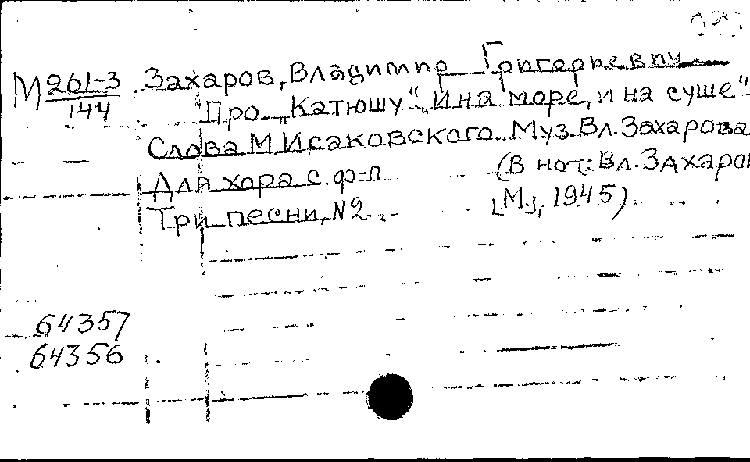 М 261-3/144 Захаров, Владимир Григорьевич
Про „Катюшу“. „И на море, и на суше“
Слова М Исаковского. Муз Вл. Захарова
Для хора с ф-п (В нот: Вл. Захаров
Три песни, №2 [М.], 1945)
64357
64356